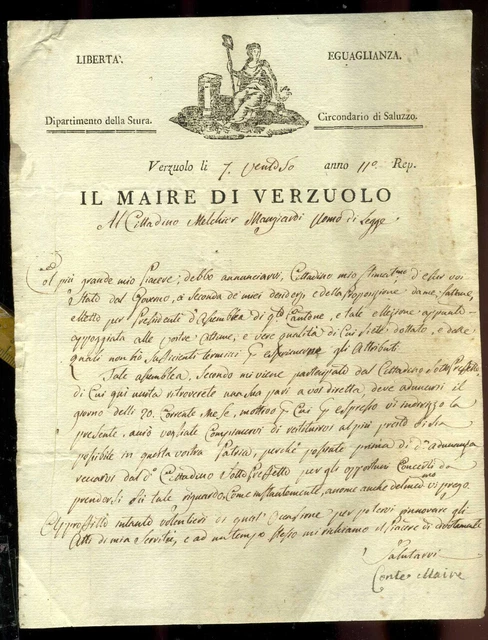 LIBERTA'. EGUAGLIANZA.
Dipartimento della Stura. Circondario di Saluzzo.
Verzuolo li 7. Vend.o anno 11.o Rep.
IL MAIRE DI VERZUOLO
Al Cittadino Melchior Mangiardi Uomo di Legge
Col più grande mio piacere, debbo annunciarvi, Cittadino mio stimat.mo d'esser voi
stato dal Governo, a seconda de miei desiderj e della proposizione dame fattane,
eletto per Presidente d'Assemblea di q.to Cantone, e tale ellezione appunto
appoggiata alle vostre ottime, e vere qualità di cui siete dottato, e delle
quali non ho sufficienti termini p esprimerne gli Attributi.
Tale assemblea, secondo mi viene partecipato dal Cittadino Sotto Prefetto,
di cui qui unita ritroverete una sua a voi diretta, deve adunarsi il
giorno delli 20. corrente Mese, motivo p cui p espresso vi indirizzo la
presente, acciò vogliate compiacervi di restituirvi al più presto
possibile in questa vostra Patria, perchè possiate prima di d.a adunanza
recarvi dal d.o Cittadino Sotto Prefetto per gli opportuni Concerti da
prendersi a tale riguardo, come instantemente, anche vi prego.
Approffitto intanto volentieri di quest' occasione per potervi rinnovare gli
Atti di mia Servitù, e ad un tempo stesso mi richiamo il piacere di divotamente
Salutarvi
Conte Maire